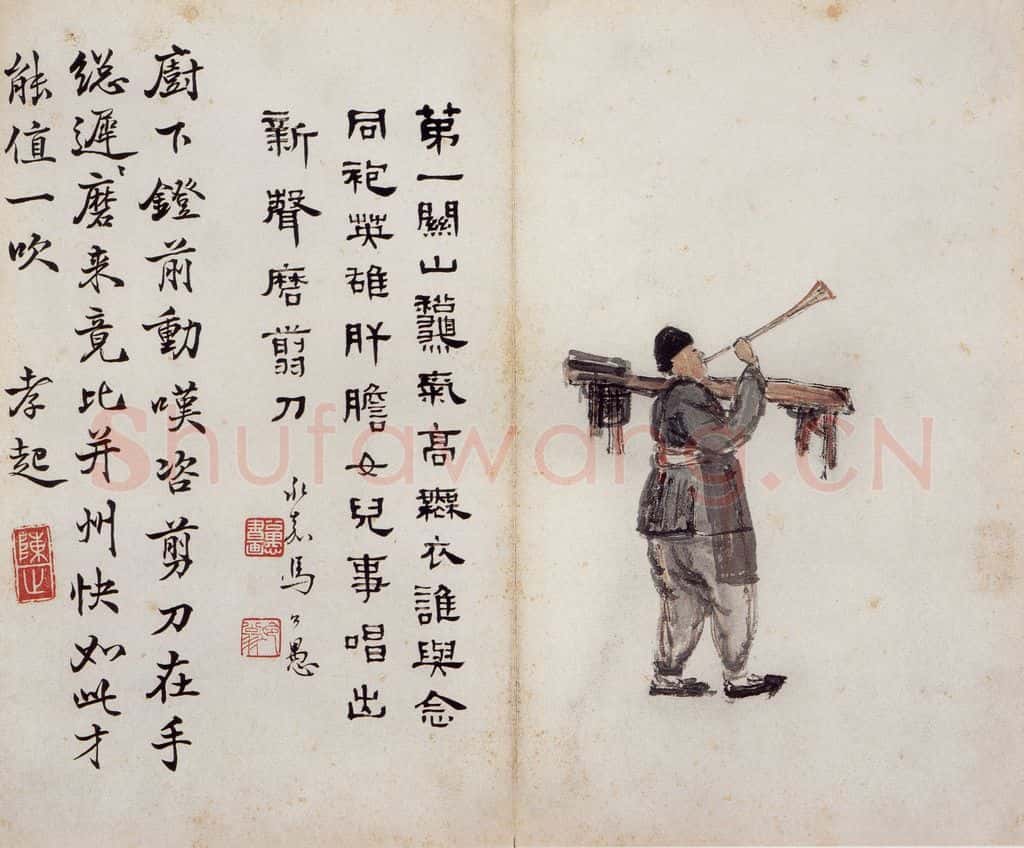 第一關山龝氣高無衣誰與念
同袍英雄肝膽女兒事唱出
新聲磨翦刀
永嘉馬公愚
廚下鐙前動嘆咨剪刀在手
總遲〻磨来竟比并州快如此才
能值一吹 孝起
陳止
Shufawang.CN